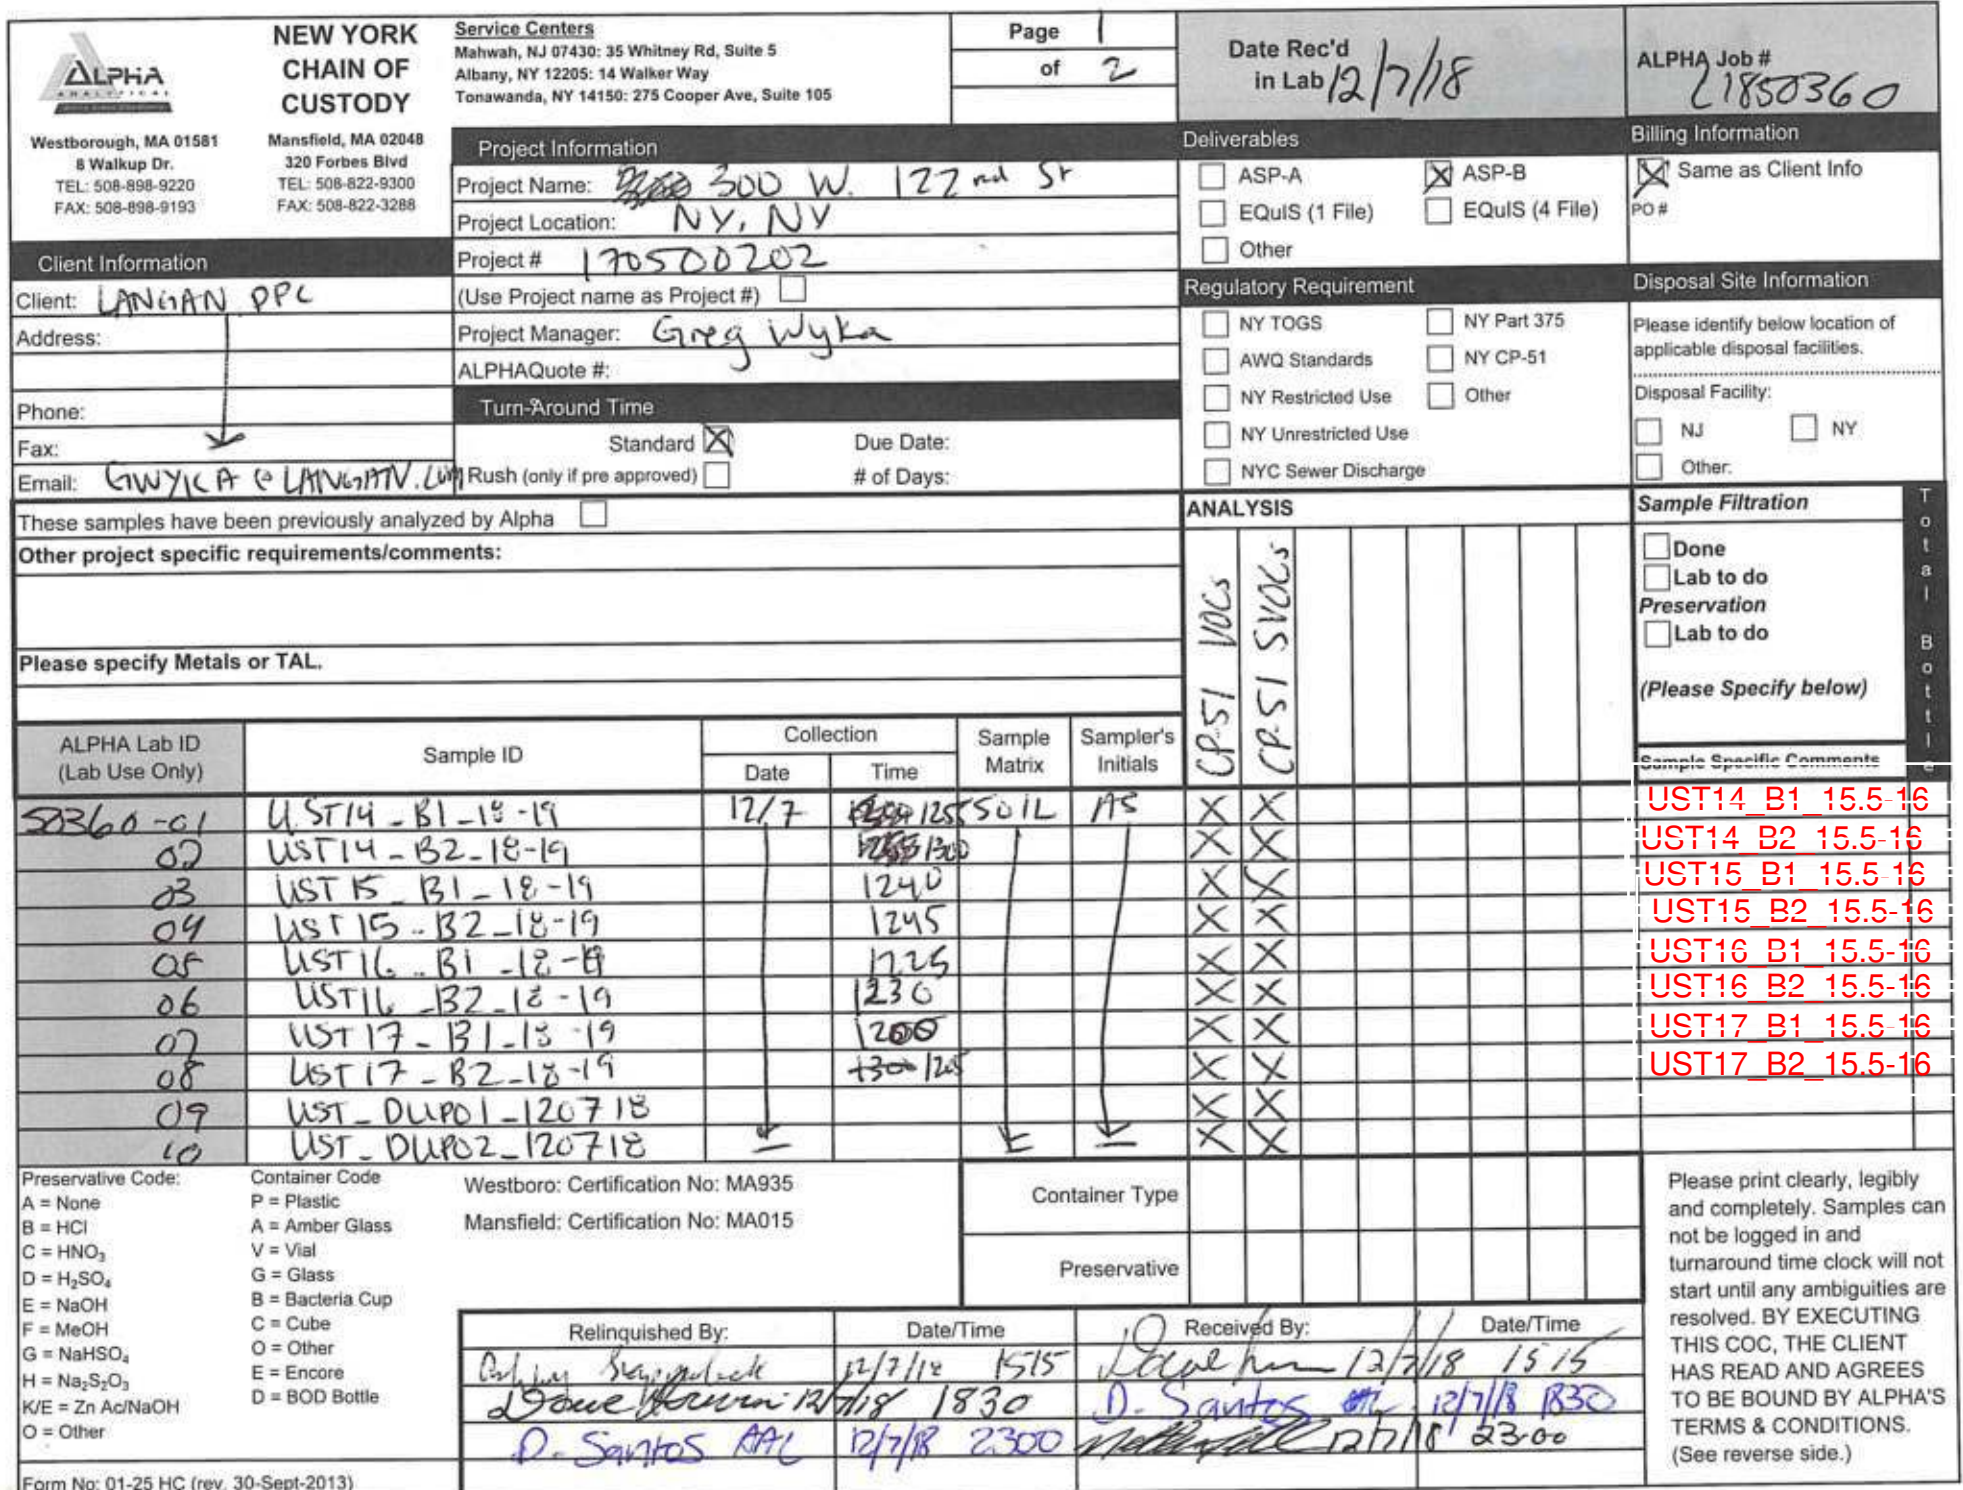 ALPHA
ANALYTICAL
NEW YORK
CHAIN OF
CUSTODY
Westborough, MA 01581
8 Walkup Dr.
TEL: 508-898-9220
FAX: 508-898-9193
Mansfield, MA 02048
320 Forbes Blvd
TEL: 508-822-9300
FAX: 508-822-3288
Service Centers
Mahwah, NJ 07430: 35 Whitney Rd, Suite 5
Albany, NY 12205: 14 Walker Way
Tonawanda, NY 14150: 275 Cooper Ave, Suite 105
Page 1
of 2
Date Rec'd
in Lab 12/7/18
ALPHA Job #
L1850360
Project Information
Project Name: 300 W. 122nd St
Project Location: NY, NY
Project # 170500202
(Use Project name as Project #)
Project Manager: Greg Wyka
ALPHAQuote #:
Client Information
Client: LANGAN DPC
Address:
Phone:
Fax:
Email: GWYKA@LANGAN.COM
Turn-Around Time
Standard X Due Date:
Rush (only if pre approved) # of Days:
Deliverables
ASP-A X ASP-B
EQuIS (1 File) EQuIS (4 File)
Other
Regulatory Requirement
NY TOGS NY Part 375
AWQ Standards NY CP-51
NY Restricted Use Other
NY Unrestricted Use
NYC Sewer Discharge
Billing Information
X Same as Client Info
PO #
Disposal Site Information
Please identify below location of
applicable disposal facilities.
Disposal Facility:
NJ NY
Other:
These samples have been previously analyzed by Alpha
Other project specific requirements/comments:
Please specify Metals or TAL.
ANALYSIS
CP-51 VOCs
CP-51 SVOCs
Sample Filtration
Done
Lab to do
Preservation
Lab to do
(Please Specify below)
Total Bottle
ALPHA Lab ID
(Lab Use Only)
Sample ID
Collection
Date Time
Sample
Matrix
Sampler's
Initials
Sample Specific Comments
50360-01 UST14_B1_18-19 12/7 1255 SOIL AS X X UST14_B1_15.5-16
02 UST14_B2_18-19 1300 X X UST14_B2_15.5-16
03 UST15_B1_18-19 1240 X X UST15_B1_15.5-16
04 UST15_B2_18-19 1245 X X UST15_B2_15.5-16
05 UST16_B1_18-19 1225 X X UST16_B1_15.5-16
06 UST16_B2_18-19 1230 X X UST16_B2_15.5-16
07 UST17_B1_18-19 1200 X X UST17_B1_15.5-16
08 UST17_B2_18-19 1300 1205 X X UST17_B2_15.5-16
09 UST_DUP01_120718 X X
10 UST_DUP02_120718 X X
Preservative Code:
A = None
B = HCl
C = HNO₃
D = H₂SO₄
E = NaOH
F = MeOH
G = NaHSO₄
H = Na₂S₂O₃
K/E = Zn Ac/NaOH
O = Other
Container Code
P = Plastic
A = Amber Glass
V = Vial
G = Glass
B = Bacteria Cup
C = Cube
O = Other
E = Encore
D = BOD Bottle
Westboro: Certification No: MA935
Mansfield: Certification No: MA015
Container Type
Preservative
Relinquished By: Date/Time Received By: Date/Time
12/7/18 1515 12/7/18 1515
12/7/18 1830 D. Santos 12/7/18 1830
D. Santos AAL 12/7/18 2300 12/7/18 23:00
Please print clearly, legibly
and completely. Samples can
not be logged in and
turnaround time clock will not
start until any ambiguities are
resolved. BY EXECUTING
THIS COC, THE CLIENT
HAS READ AND AGREES
TO BE BOUND BY ALPHA'S
TERMS & CONDITIONS.
(See reverse side.)
Form No: 01-25 HC (rev. 30-Sept-2013)